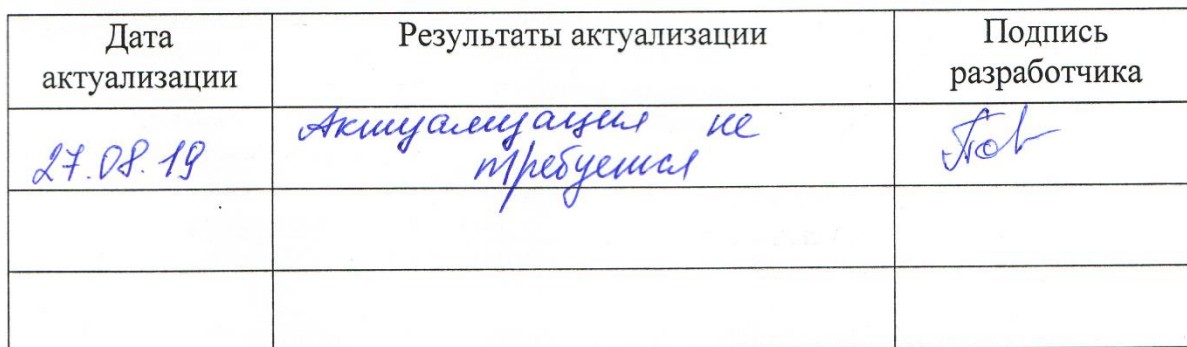 Дата
актуализации
Результаты актуализации
Подпись
разработчика
27.08.19
Актуализация не
требуется